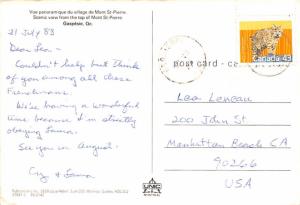 Vue panoramique du village de Mont St-Pierre
Scenic view from the top of Mont St-Pierre
Gaspésie, Qc.
21 July 83
Dear Lea -
Couldn't help but think
of you among all these
Frenchmen.
We're having a wonderful
time because I'm strictly
obeying
See you in August.
post card - ca
Canada 43
Lea
200 John St
Manhattan Beach CA
90266
USA
UNIC
MONTREAL